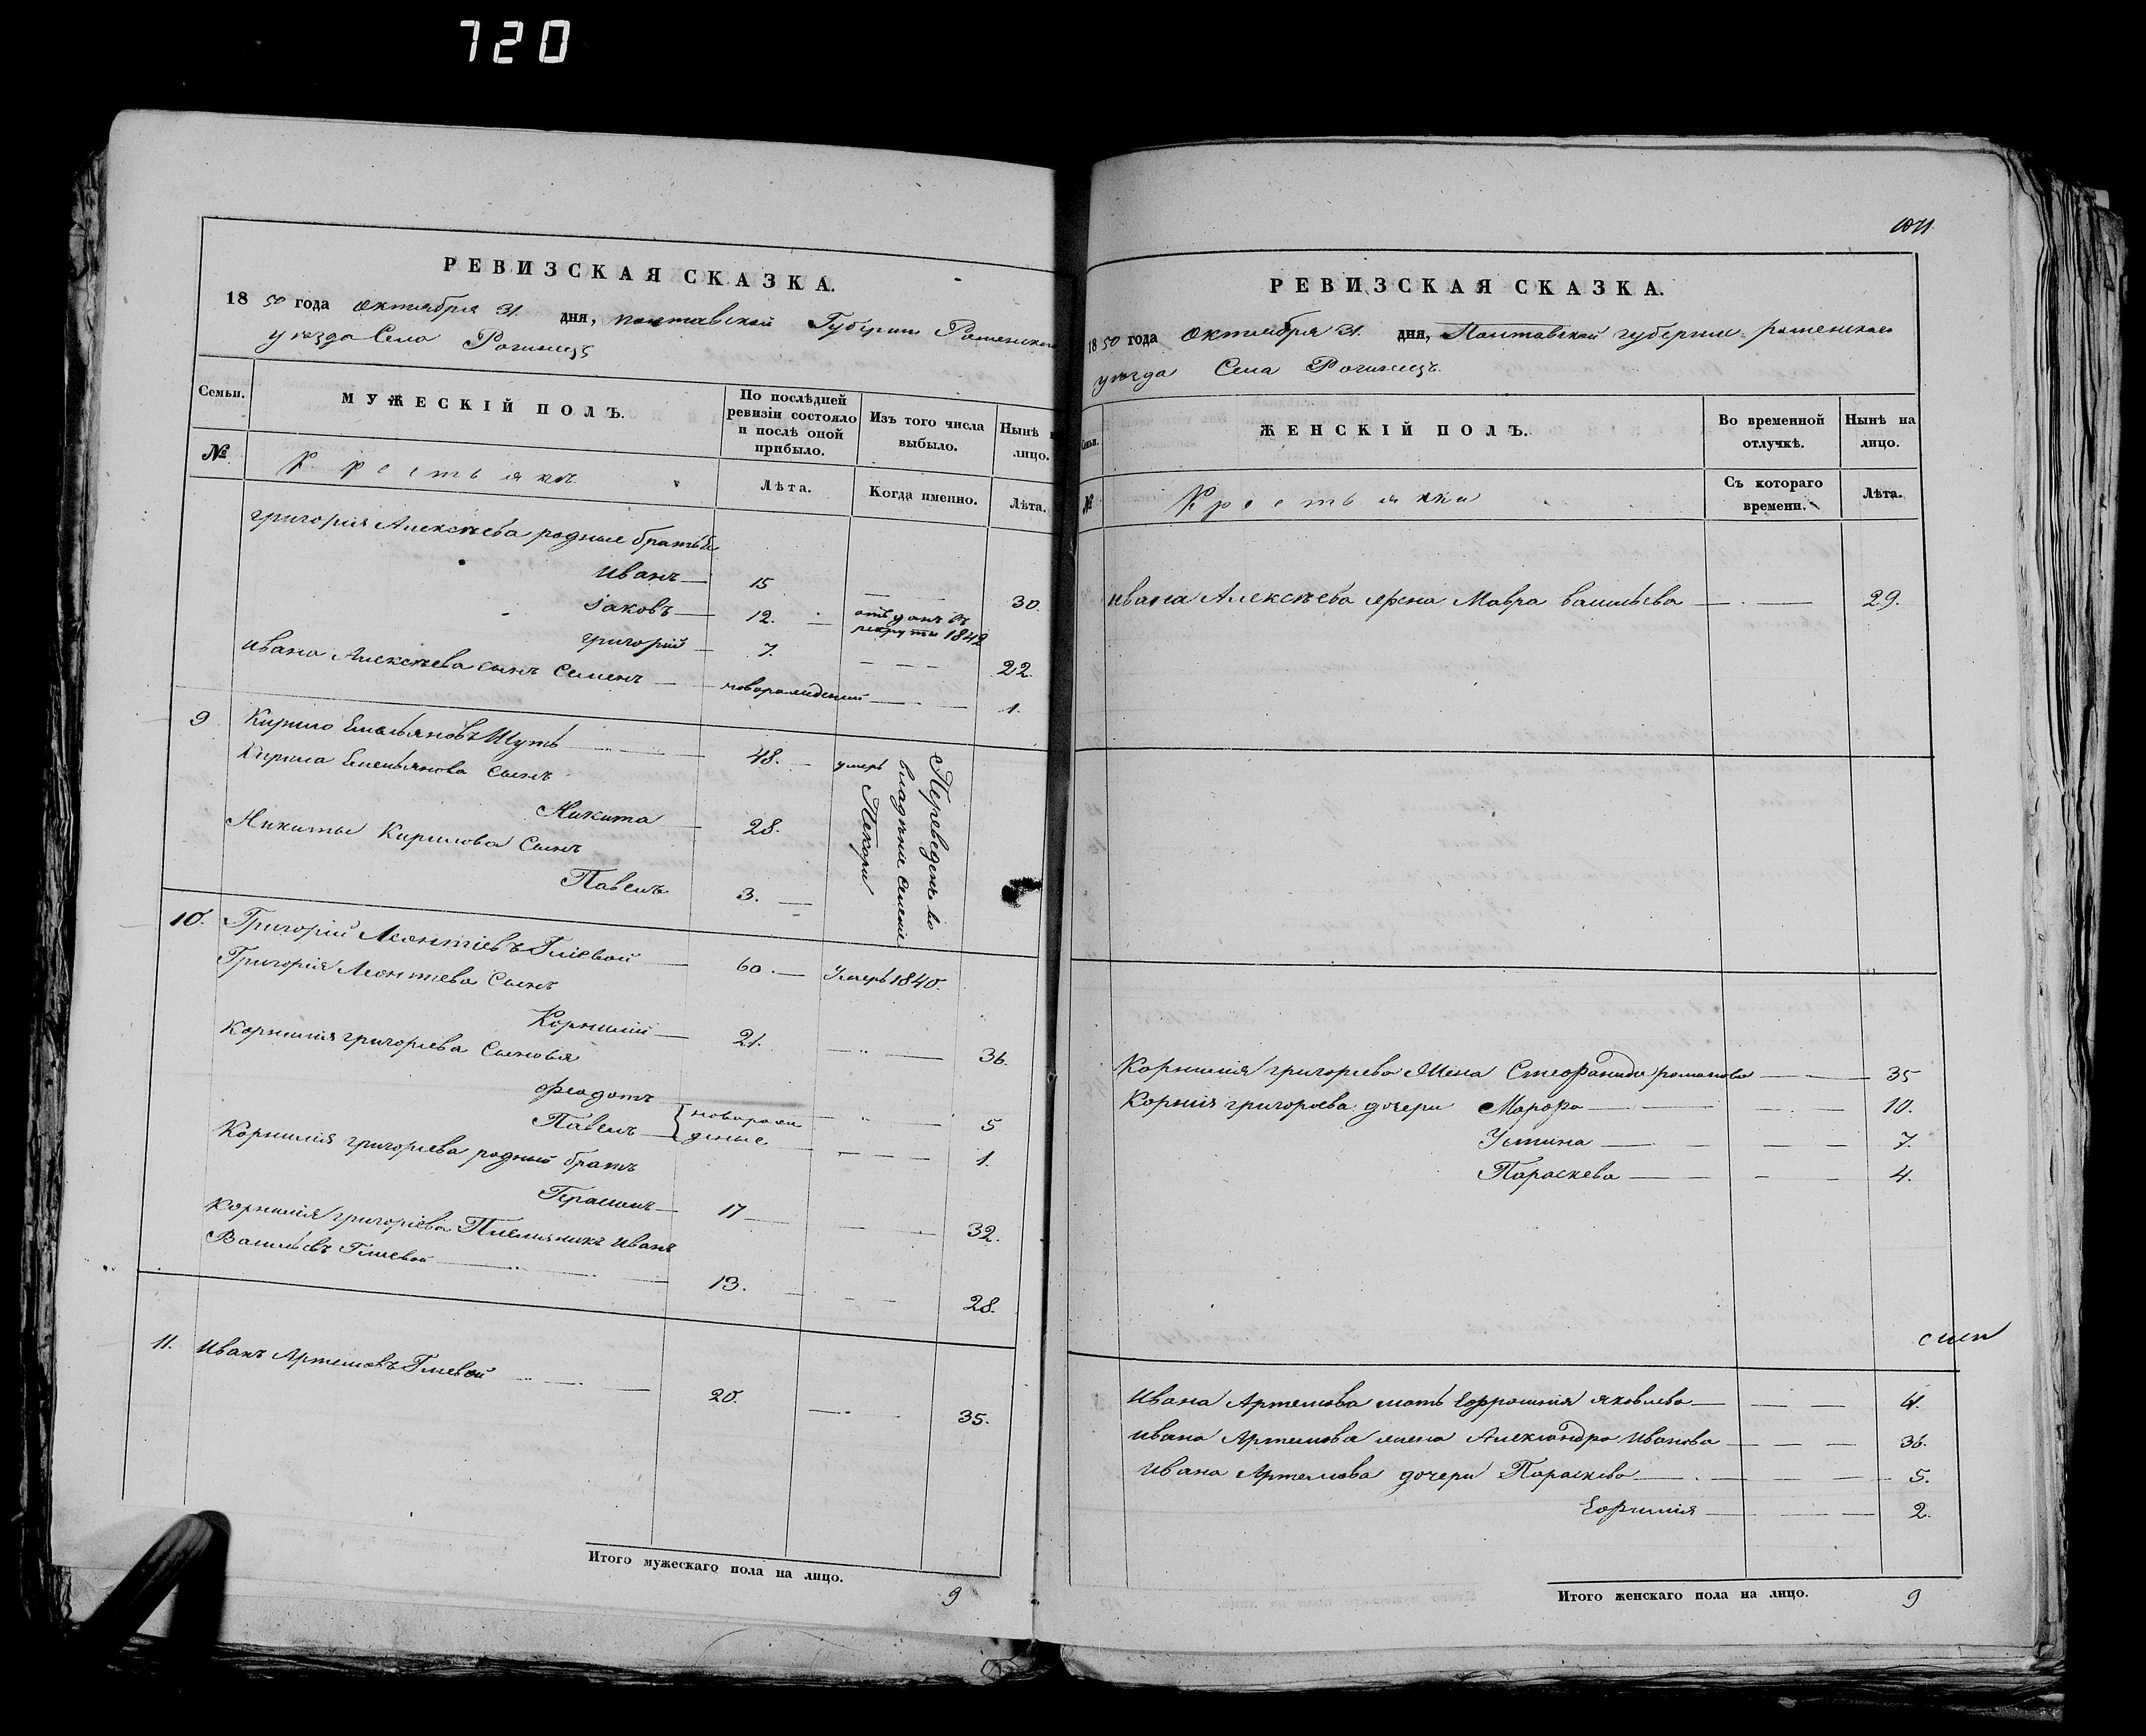 720
РЕВИЗСКАЯ СКАЗКА.
1850 года Октября 31. дня, Полтавской Губернии Роменского
уезда Села Рогинецъ
Семьи. МУЖЕСКІЙ ПОЛЪ. По послѣдней ревизіи состояло и послѣ оной прибыло. Изъ того числа выбыло. Нынѣ на лицо.
№ Крестьянъ Лѣта. Когда именно. Лѣта.
Григорія Алексѣева родные братья
Иванъ 15 30.
Іаковъ 12. отданъ въ рекруты 1842
Григорій 7. 22.
Ивана Алексѣева сынъ Семенъ новорожденный 1.
9 Кирило Емельяновъ Шуть 48. умеръ
Кирила Емельянова Сынъ
Никита 28.
Никиты Кирилова Сынъ
Павелъ 3.
Переведенъ во
владѣніе
10. Григорій Леонтіевъ Глѣвой 60. Умеръ 1840.
Григорія Леонтева Сынъ
Корнилій 21. 36.
Корнилія Григорьева Сыновья
Феодотъ 5
Павелъ новорожденые 1.
Корнилія Григорьева родный братъ
Герасимъ 17 32.
Корнилія Григоріева Племяникъ Иванъ
Васильевъ Глѣевой 13. 28.
11. Иванъ Артемовъ Глевой 20. 35.
Итого мужескаго пола на лицо. 9
РЕВИЗСКАЯ СКАЗКА.
1850 года Октября 31. дня, Полтавской губерніи роменскаго
уѣзда Села Рогинецъ
Семьи. ЖЕНСКІЙ ПОЛЪ. Во временной отлучкѣ. Нынѣ на лицо.
№ Крестьянки Съ котораго времени. Лѣта.
Ивана Алексѣева жена Мавра Васильева 29.
Корнилія Григорьева Жена Стефанида романова 35
Корнія григорьева дочери Марфа 10.
Устина 7.
Параскева 4.
Ивана Артемова мать Ефросинія Яковлева
Ивана Артемова жена Александра Иванова 36.
Ивана Артемова дочери Параскева 5.
Ефимія 2.
Итого женскаго пола на лицо. 9